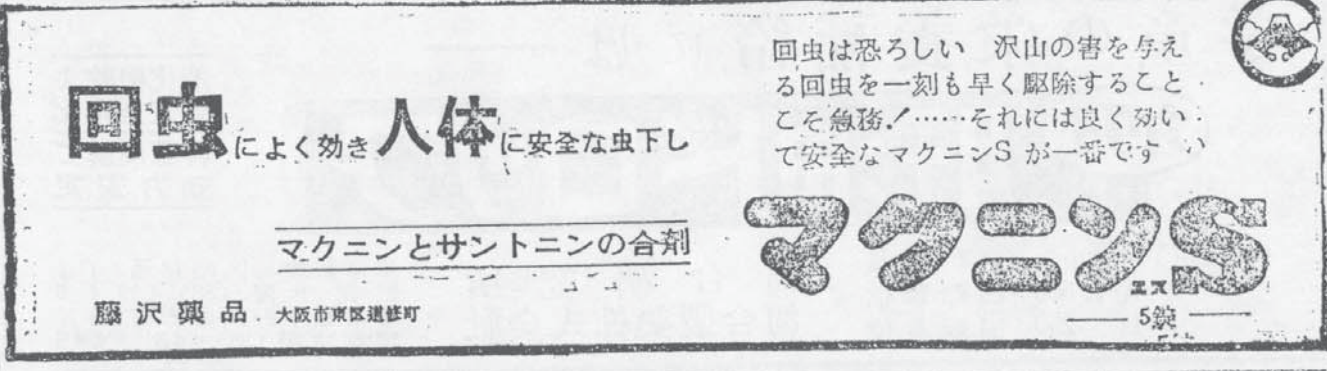 回虫によく効き人体に安全な虫下し
マクニンとサントニンの合剤
藤沢薬品 大阪市東区道修町
回虫は恐ろしい 沢山の害を与え
る回虫を一刻も早く駆除すること
こそ急務!……それには良く効い
て安全なマクニンS が一番です
マクニンS
エス
5錠